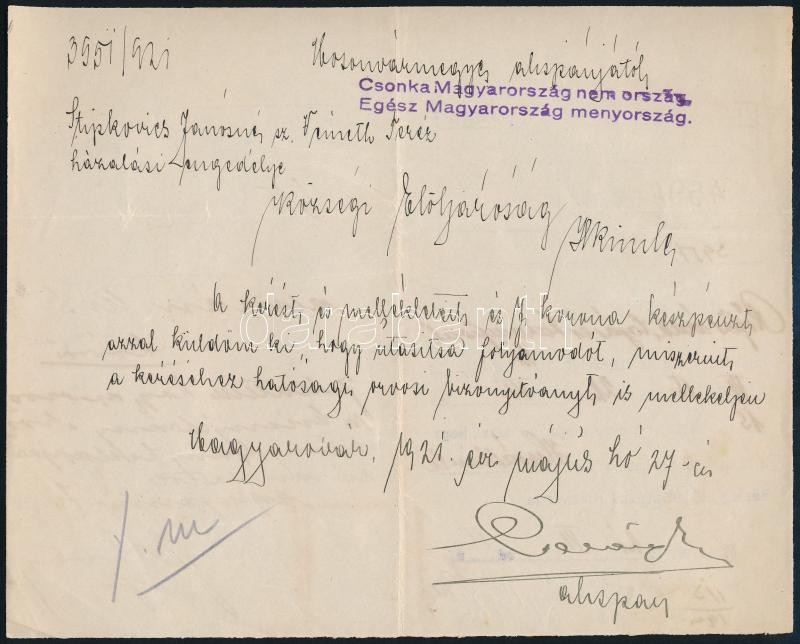 3951/921
Mosonvármegye alispánjától
Csonka Magyarország nem ország,
Egész Magyarország menyország.
Stipkovics Jánosné sz. Németh Teréz
házalási engedélye
Községi Elöljáróság
A kérést, és mellékleteit és 7 korona készpénzt,
darabanth
azzal küldöm ki hogy utasítsa folyamodót, miszerint
a kéréséhez hatósági orvosi bizonyítványt is mellékeljen
Magyaróvár, 1921. év május hó 27-én
alispán